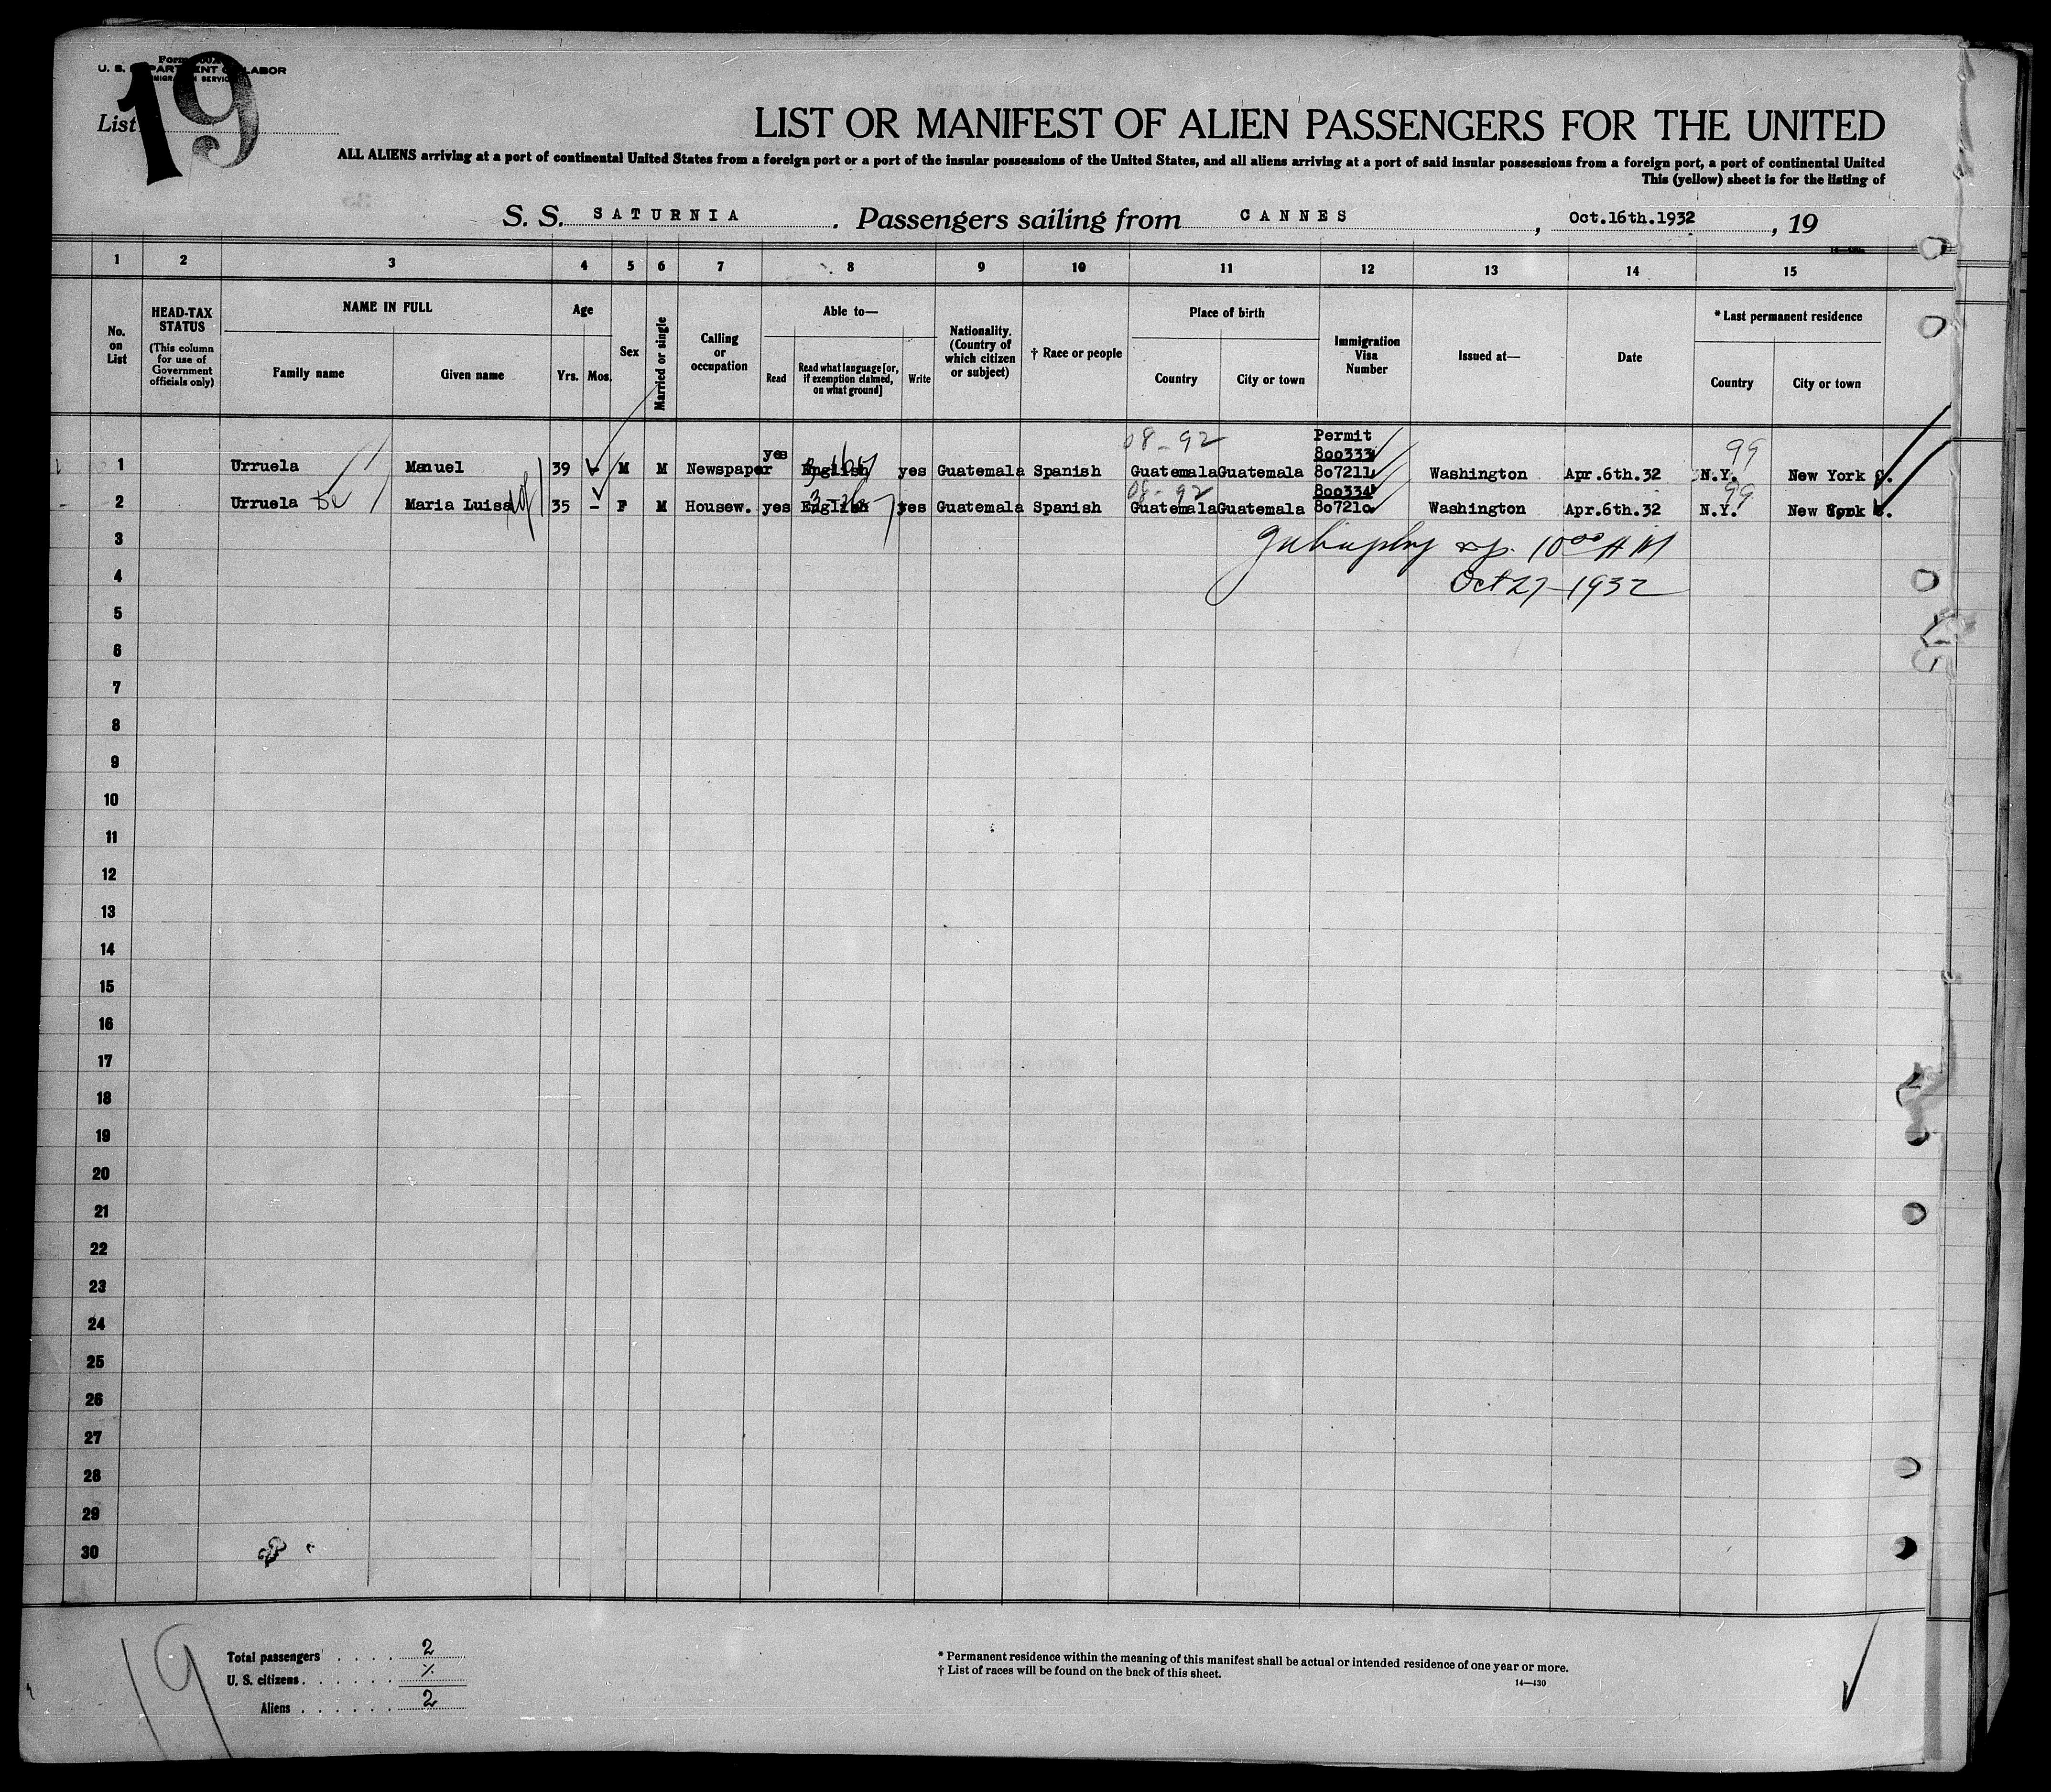 Form 500A
U. S. DEPARTMENT OF LABOR
IMMIGRATION SERVICE
List 19
LIST OR MANIFEST OF ALIEN PASSENGERS FOR THE UNITED
ALL ALIENS arriving at a port of continental United States from a foreign port or a port of the insular possessions of the United States, and all aliens arriving at a port of said insular possessions from a foreign port, a port of continental United
This (yellow) sheet is for the listing of
S. S. SATURNIA. Passengers sailing from CANNES, Oct.16th.1932, 19
1 2 3 4 5 6 7 8 9 10 11 12 13 14 15
No. on List
HEAD-TAX STATUS (This column for use of Government officials only)
NAME IN FULL
Family name Given name
Age
Yrs. Mos.
Sex
Married or single
Calling or occupation
Able to—
Read
Read what language [or, if exemption claimed, on what ground]
Write
Nationality. (Country of which citizen or subject)
† Race or people
Place of birth
Country City or town
Immigration Visa Number
Issued at—
Date
* Last permanent residence
Country City or town
08-92 Permit 99
yes 800333
1 Urruela Manuel 39 - M M Newspaper English yes Guatemala Spanish Guatemala Guatemala 807211 Washington Apr.6th.32 N.Y. New York C.
08-92 800334 99
2 Urruela De Maria Luisa 35 - F M Housew. yes English yes Guatemala Spanish Guatemala Guatemala 807210 Washington Apr.6th.32 N.Y. New York C.
3 10 00 AM
4 Oct 27-1932
5
6
7
8
9
10
11
12
13
14
15
16
17
18
19
20
21
22
23
24
25
26
27
28
29
30
19
Total passengers 2
U. S. citizens
Aliens 2
* Permanent residence within the meaning of this manifest shall be actual or intended residence of one year or more.
† List of races will be found on the back of this sheet.
14—430